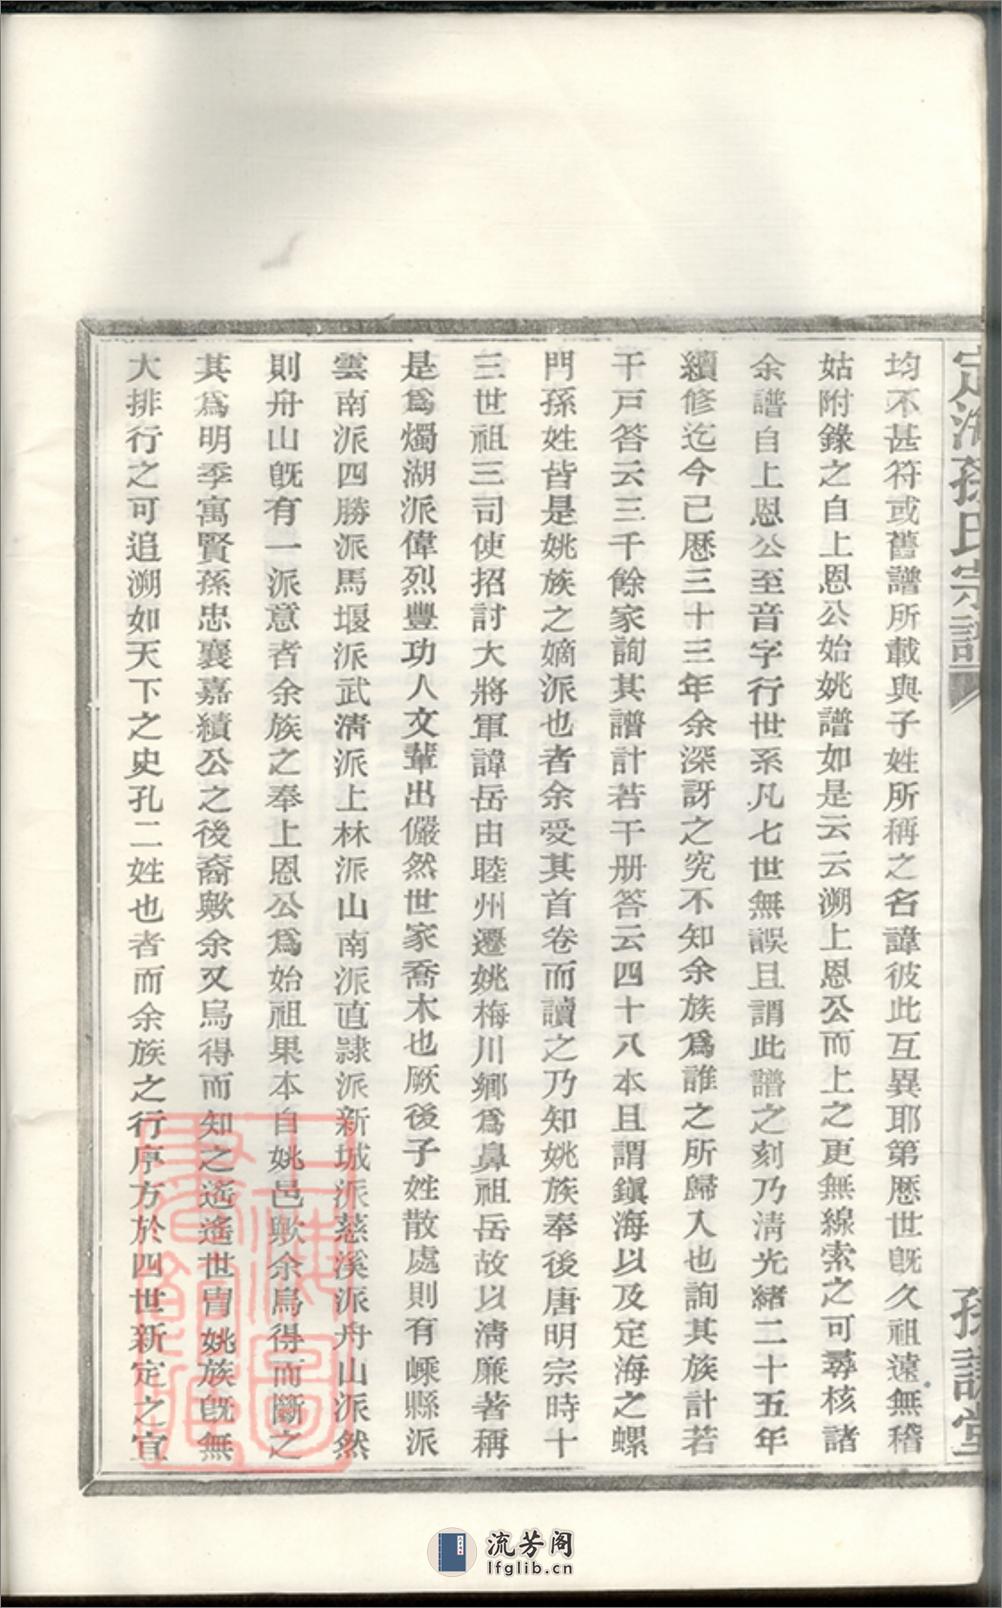 定海孫氏宗譜
孫譜堂
均不甚符或舊譜所載與子姓所稱之名諱彼此互異耶第歷世旣久祖遠無稽
姑附錄之自上恩公始姚譜如是云云溯上恩公而上之更無線索之可尋核諸
余譜自上恩公至音字行世系凡七世無誤且謂此譜之刻乃淸光緒二十五年
續修迄今已歷三十三年余深訝之究不知余族爲誰之所歸入也詢其族計若
干戶答云三千餘家詢其譜計若干册答云四十八本且謂鎭海以及定海之螺
門孫姓皆是姚族之嫡派也者余受其首卷而讀之乃知姚族奉後唐明宗時十
三世祖三司使招討大將軍諱岳由睦州遷姚梅川鄉爲鼻祖岳故以淸廉著稱
是爲燭湖派偉烈豐功人文輩出儼然世家喬木也厥後子姓散處則有嵊縣派
雲南派四勝派馬堰派武淸派上林派山南派直隷派新城派慈溪派舟山派然
則舟山旣有一派意者余族之奉上恩公爲始祖果本自姚邑歟余烏得而斷之
其爲明季寓賢孫忠襄嘉績公之後裔歟余又烏得而知之遙遙世冑姚族旣無
大排行之可追溯如天下之史孔二姓也者而余族之行序方於四世新定之宜
流芳阁
lfglib.cn